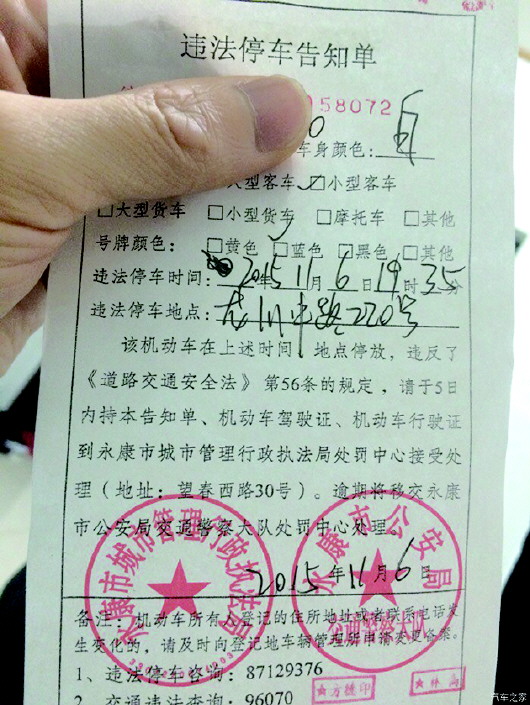 违法停车告知单
158072
车身颜色：白
大型客车 小型客车
大型货车 小型货车 摩托车 其他
号牌颜色： 黄色 蓝色 黑色 其他
违法停车时间： 2015年11月6日19时35分
违法停车地点： 龙川中路220号
该机动车在上述时间、地点停放，违反了
《道路交通安全法》第56条的规定，请于5日
内持本告知单、机动车驾驶证、机动车行驶证
到永康市城市管理行政执法局处罚中心接受处
理（地址：望春西路30号）。逾期将移交永康
市公安局交通警察大队处罚中心处理。
永康市城市管理行政执法局
永康市公安局
2015年11月6日
备注：机动车所有人登记的住所地址或者联系电话发
生变化的，请及时向登记地车辆管理所申请变更备案。
1、违法停车咨询：87129376
2、交通违法查询：96070
汽车之家